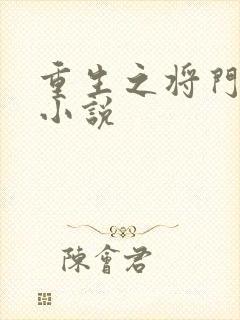 重生之将門
小說
陳會君